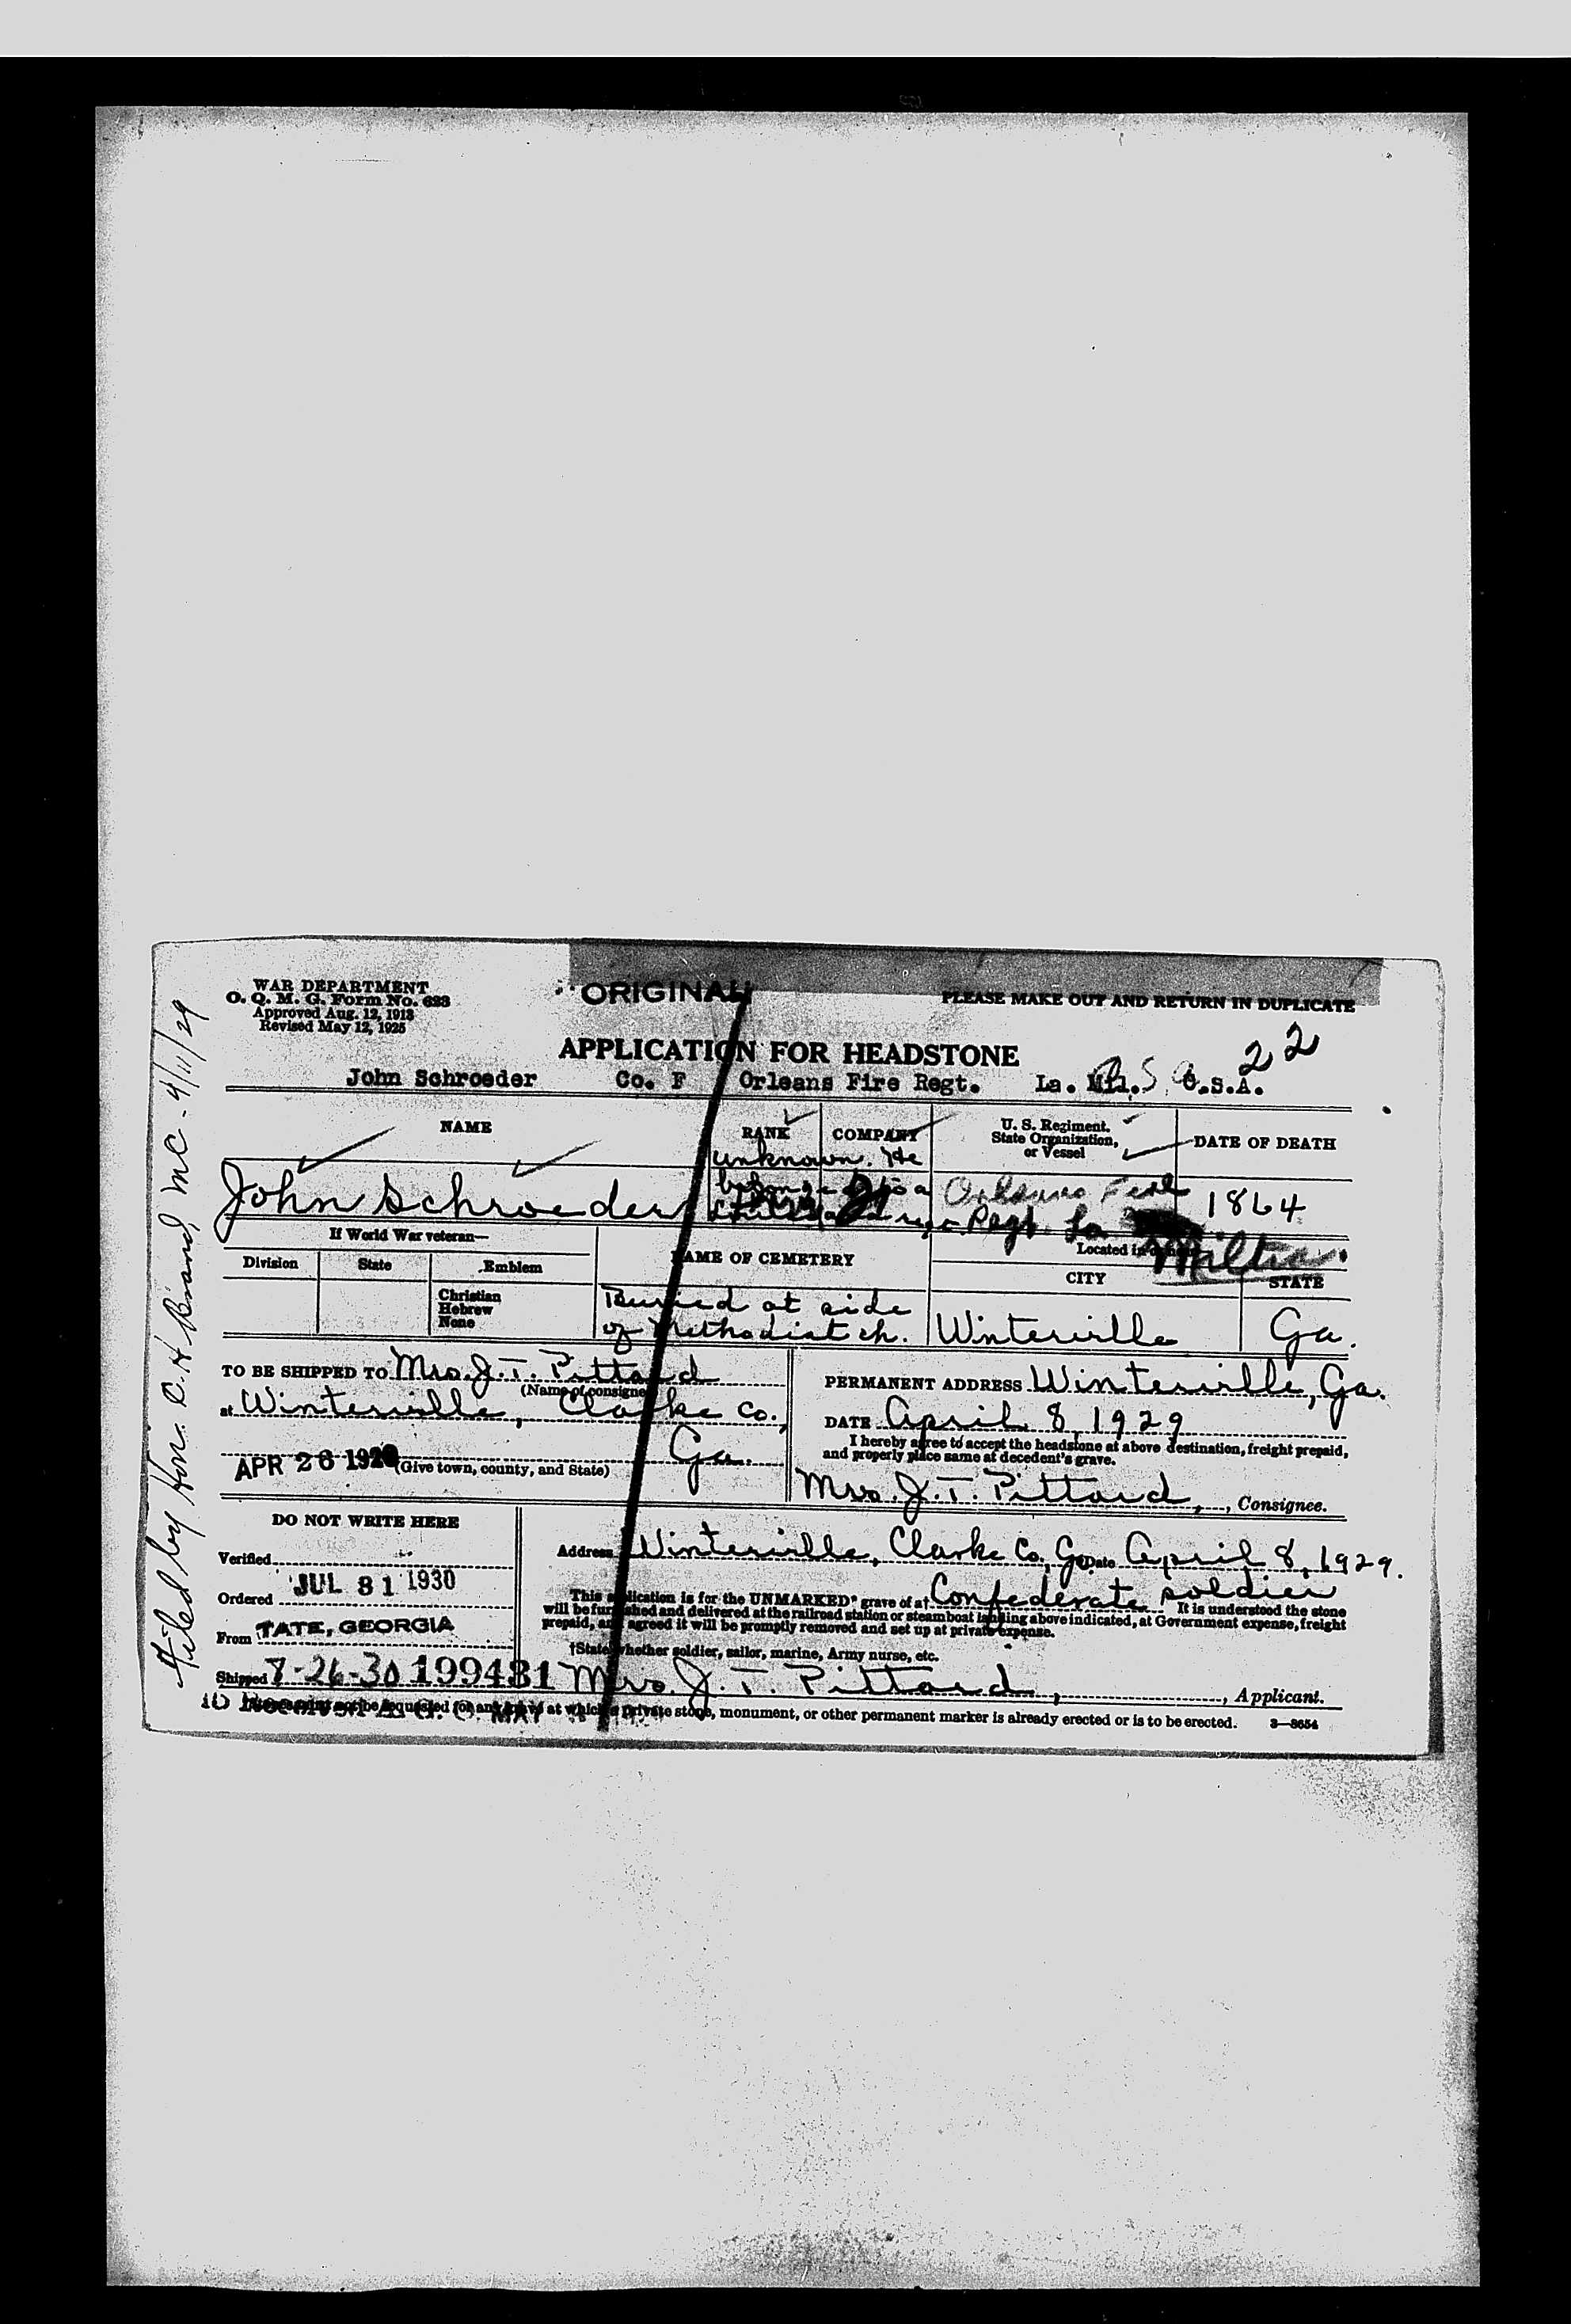 WAR DEPARTMENT
O. Q. M. G. Form No. 623
Approved Aug. 12, 1913
Revised May 12, 1925
ORIGINAL
PLEASE MAKE OUT AND RETURN IN DUPLICATE
22
APPLICATION FOR HEADSTONE
John Schroeder Co. F Orleans Fire Regt. La. Mil. C.S.A.
NAME
RANK
COMPANY
U. S. Regiment,
State Organization,
or Vessel
DATE OF DEATH
John Schroeder
unknown. He
belonged to a
Orleans Fire
Regt. La
Militia.
1864
If World War veteran—
Division
State
Emblem
Christian
Hebrew
None
NAME OF CEMETERY
Located in
CITY
STATE
Buried at side
of Methodist ch.
Winterville
Ga.
TO BE SHIPPED TO Mrs. J. T. Pittard
(Name of consignee)
at Winterville, Clarke Co.,
Ga.
APR 26 1929
(Give town, county, and State)
PERMANENT ADDRESS Winterville, Ga.
DATE April 8, 1929
I hereby agree to accept the headstone at above destination, freight prepaid,
and properly place same at decedent's grave.
Mrs. J. T. Pittard, Consignee.
DO NOT WRITE HERE
Verified
JUL 31 1930
Ordered
From TATE, GEORGIA
Shipped 8-26-30 199431
Address Winterville, Clarke Co., Ga. Date April 8, 1929.
This application is for the UNMARKED grave of a† Confederate soldier It is understood the stone
will be furnished and delivered at the railroad station or steamboat landing above indicated, at Government expense, freight
prepaid, and agreed it will be promptly removed and set up at private expense.
†State whether soldier, sailor, marine, Army nurse, etc.
Mrs. J. T. Pittard, Applicant.
not be requested for any grave at which a private stone, monument, or other permanent marker is already erected or is to be erected. 3—8654
Filed by Hon. C. H. Brand, MC - 4/11/29